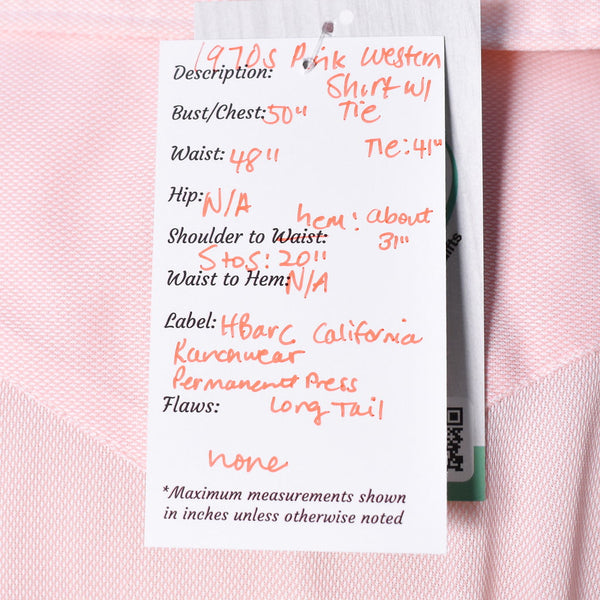 1970s Pink Western
Description: Shirt w/
Bust/Chest: 50" Tie
Waist: 48" Tie: 41"
Hip: N/A
hem: about
Shoulder to Waist: 31"
S to S: 20"
Waist to Hem: N/A
Label: HBarC California
Ranchwear
Permanent Press
Flaws: Long Tail
none
*Maximum measurements shown
in inches unless otherwise noted